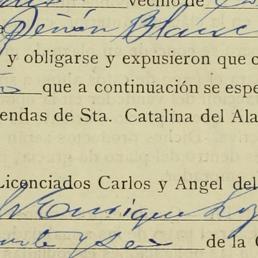 vecino de
Peñón Blanco
y obligarse y expusieron que c
que a continuación se espe
endas de Sta. Catalina del Ala
Licenciados Carlos y Angel del
Enrique
de la C